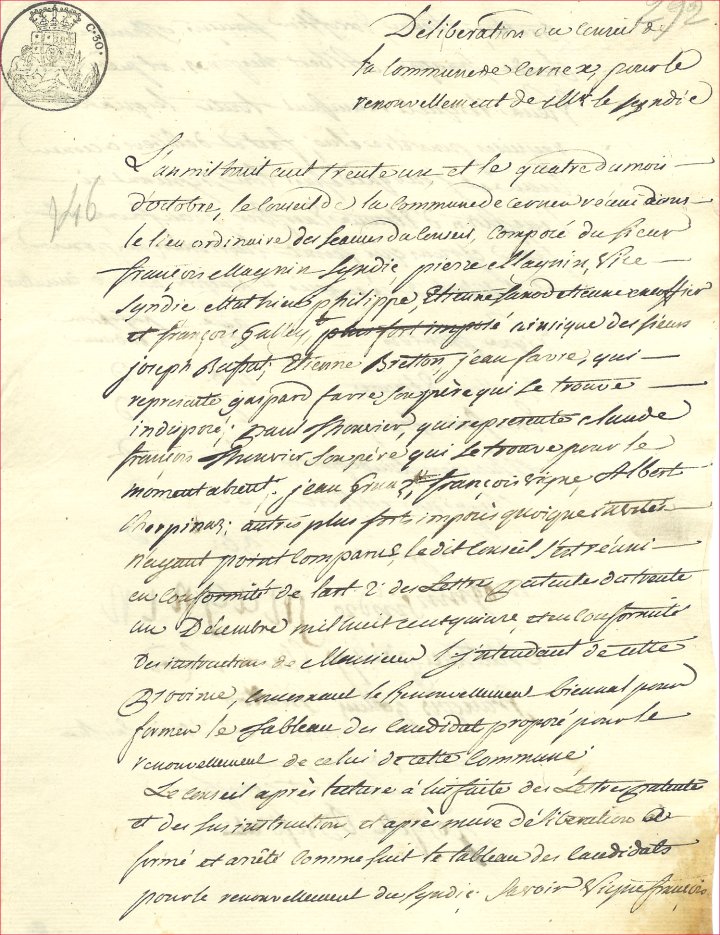 292
C. 30.
Déliberation du Conseil de
la Commune de Cernex, pour le
renouvellement de Mr le Syndic
L'an mil huit cent trente un et le quatre du mois
d'octobre, le Conseil de la Commune de Cernex réuni dans
le lieu ordinaire des seances du Conseil, composé du sieur
françois Magnin Syndic, pierre Magnin, Vice
Syndic Mathieu philippe, Etienne
et françois Galley, plus fort imposé ainsique des sieurs
joseph Bussat; Etienne Bretton, jean favre, qui
represente gaspard favre son père qui se trouve
indisposé; paul Monvier, qui represente claude
françois Monvier son père qui se trouve pour le
moment absent, jean françois vigne, Albert
Cherpinaz; autres plus forts imposés quoique invités
n'ayant point Comparus, le dit Conseil s'est réuni
en Conformité de l'art 2 des Lettre patentes du trente
un Décembre mil huit cent quinze, et en Conformité
des instructions de Monsieur l'jntendant de cette
Province, concernant le Renouvellement biennal pour
former le tableau des Candidat proposé pour le
renouvellement de celui de cette Commune;
Le Conseil après lecture à lui faite des Lettre patente
et des sus instruction, et après mure déliberation a
formé et arrêté comme suit le tableau des Candidats
pour le renouvellement du Syndic. Savoir Vigne françois
246